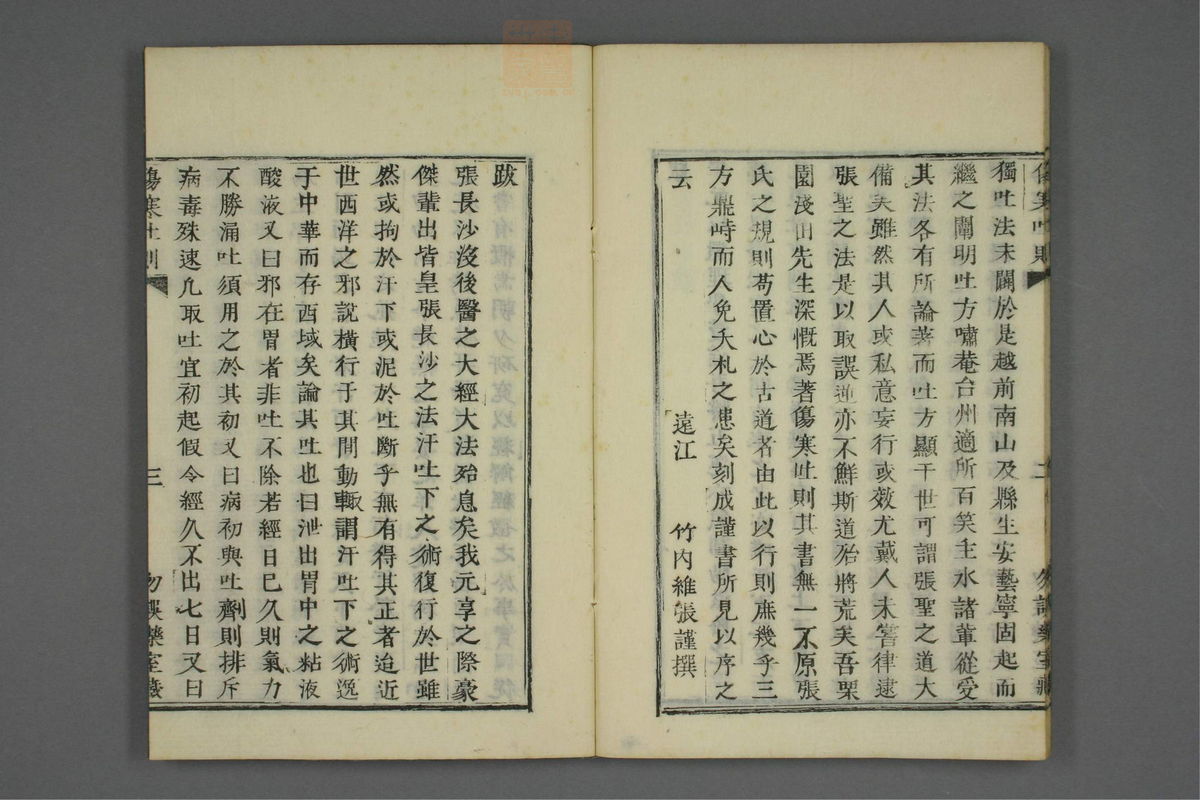 傷寒吐則 二 勿誤藥室藏
獨吐法未闢於是越前南山及縣生安藝寧固起而
繼之闡明吐方嘯菴台州適所百笑主水諸輩從受
其法各有所論著而吐方顯干世可謂張聖之道大
備矣雖然其人或私意妄行或效尤戴人未嘗律逮
張聖之法是以取誤逆亦不鮮斯道殆將荒矣吾栗
園淺田先生深慨焉著傷寒吐則其書無一不原張
氏之規則苟置心於古道者由此以行則庶幾乎三
方鼎峙而人免夭札之患矣刻成謹書所見以序之
云
遠江 竹內維張謹撰
跋
張長沙沒後醫之大經大法殆息矣我元享之際豪
傑輩出皆皇張長沙之法汗吐下之術復行於世雖
然或拘於汗下或泥於吐斷乎無有得其正者迨近
世西洋之邪說橫行于其間動輙謂汗吐下之術逸
于中華而存西域矣論其吐也曰泄出胃中之粘液
酸液又曰邪在胃者非吐不除若經日已久則氣力
不勝漏吐須用之於其初又曰病初與吐劑則排斥
病毒殊速凡取吐宜初起假令經久不出七日又曰
傷寒吐則 三 勿誤藥室藏